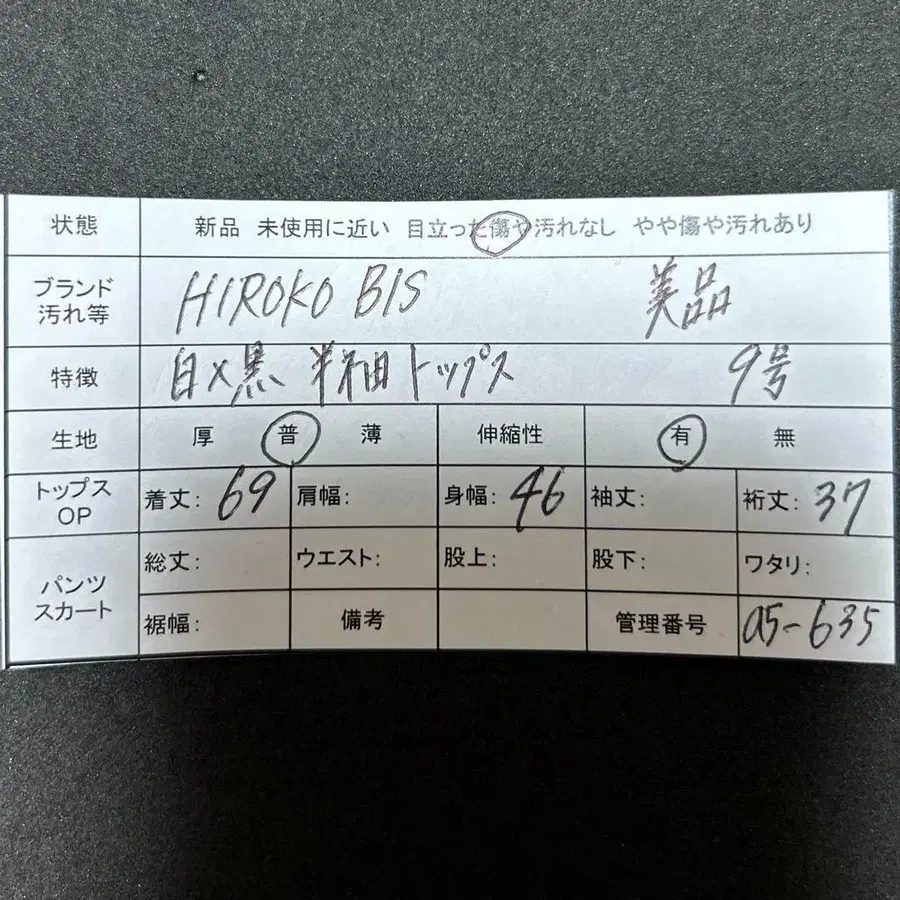 状態 新品 未使用に近い 目立った傷や汚れなし やや傷や汚れあり
ブランド
汚れ等 HIROKO BIS 美品
特徴 白×黒 半袖トップス 9号
生地 厚 普 薄 伸縮性 有 無
トップス
OP 着丈: 69 肩幅: 身幅: 46 袖丈: 裄丈: 37
パンツ
スカート 総丈: ウエスト: 股上: 股下: ワタリ:
裾幅: 備考 管理番号 a5-635